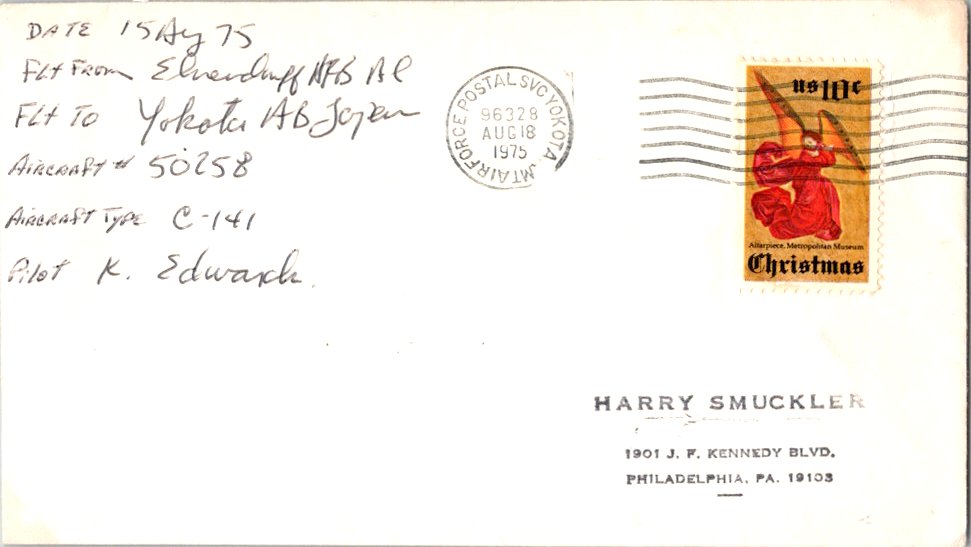 DATE 15 Aug 75
FLT FROM Elmendorf AFB Al
FLT TO Yokota AB Japan
AIRCRAFT # 50258
AIRCRAFT TYPE C-141
Pilot K. Edwards
AIR FORCE POSTAL SVC YOKOTA
96328
AUG 18
1975
us 10¢
Altarpiece, Metropolitan Museum
Christmas
HARRY SMUCKLER
1901 J. F. KENNEDY BLVD.
PHILADELPHIA, PA. 19103